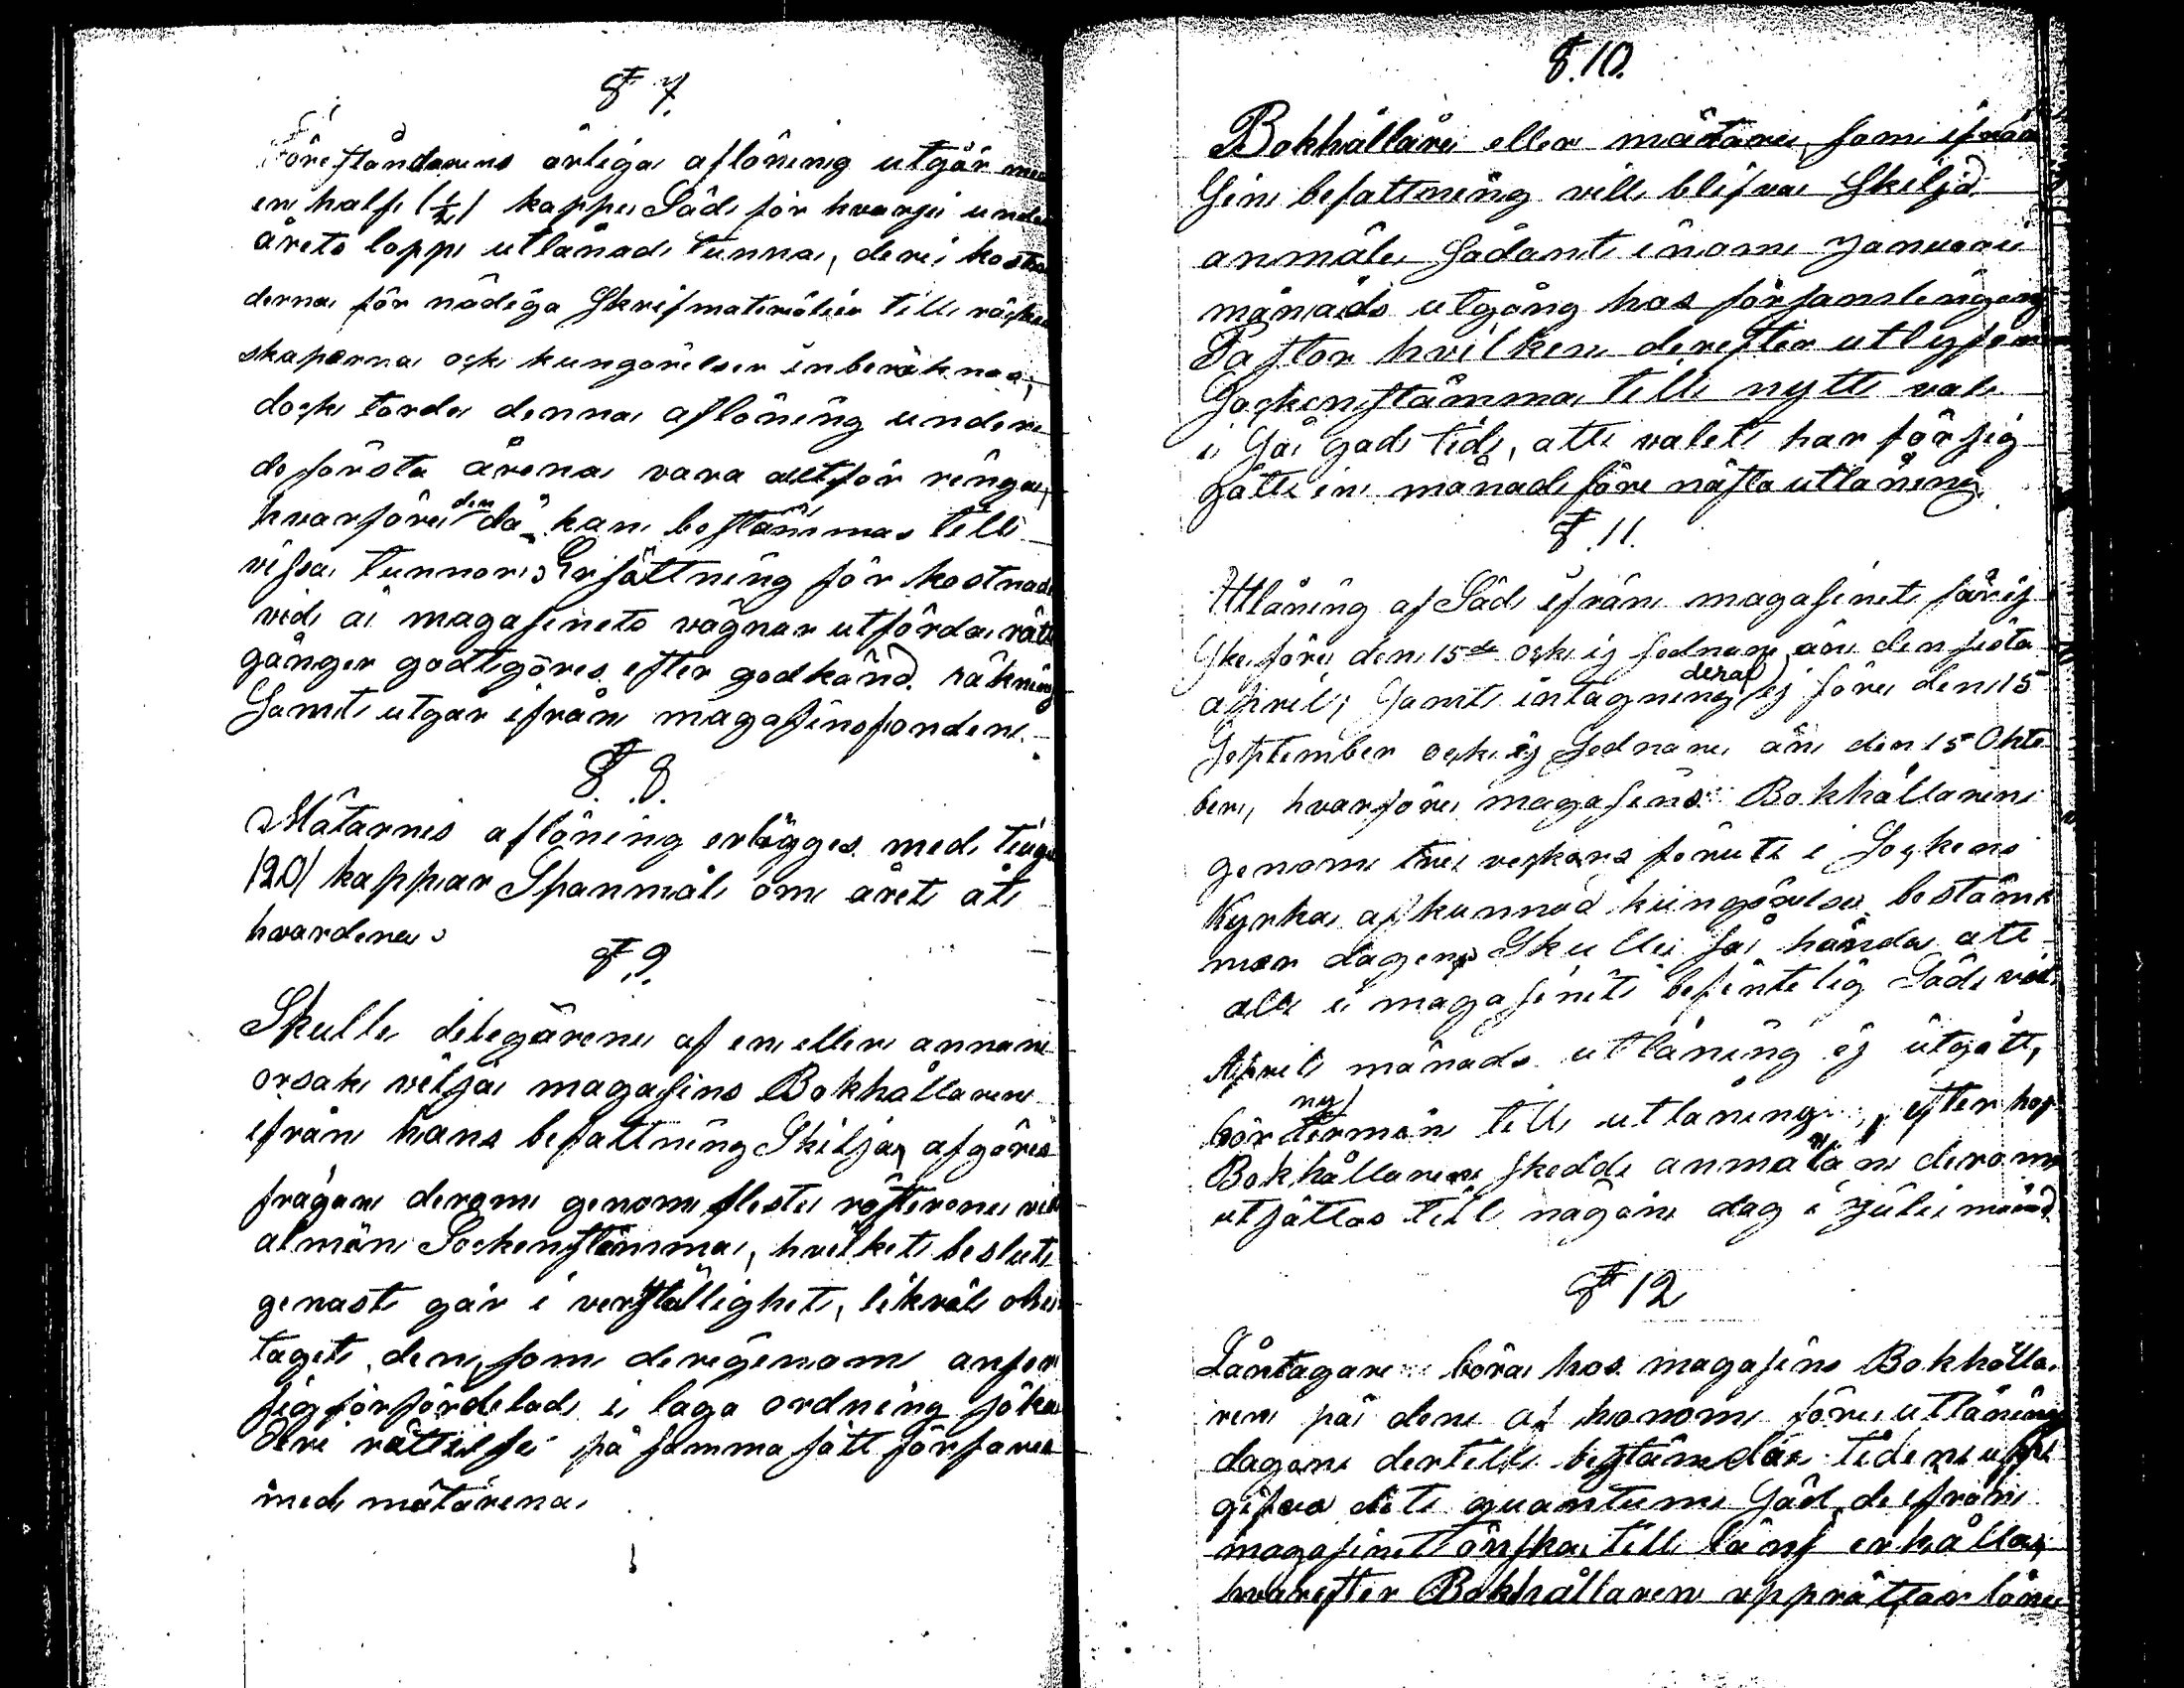 § 7.
Föreståndarens årliga aflöning utgår med
en half (1/2) kappe Säd för hvarje under
årets lopp utlånad tunna, deri kostna
derna för nödiga Skrifmaterialier till räcken
skaperna och kungörelser inberäknas,
dock torde denna aflöning under
de första årena vara altför ringa,
hvarföre den då kan bestämmas till
vissa tunnor. Ersättning för kostnad
vid å magasinets vägnar utförda rätte
gånger godtgöres efter godkänd räkning
Samt utgår ifrån magasinsfonden.
§. 8.
Mätarnes aflöning erlägges med tiugo
/20/ kappar Spanmål om året åt
hvardera.
§ 9.
Skulle delegärene af en eller annan
orsak vilja magasins Bokhållaren
ifrån hans befattning Skilja, afgöres
frågan derom genom flesta rösterne vid
almän Sockenstämma, hvilket beslut
genast går i verställighet, likväl obe
taget den, som derigenom anser
sig förfördelad i laga ordning söka
deri rättelse på samma sätt förfares
med mätarena.
§. 10.
Bokhållare eller mätare, som ifrån
Sin befattning vill blifva Skiljd
anmäle Sådant inom Januarii
månads utgång hos församlingens
Pastor hvilken derefter utlyser
Sockenstämma till nytt val
i Så god tid, att valet har för sig
gått en månad före nästa utlåning.
§. 11.
Utlåning af Säd ifrån magasinet får ej
Ske före den 15de och ej sednare än den sista
april, Samt intagning deraf ej före den 15
September och ej Sednare än den 15 Okto
ber, hvarföre magasins Bokhållaren
genom tre veckors förut i Sockens
Kyrka afkunnad kungörelse bestäm
mer dagen. Skulle så hända att
all i magasinet befintelig Säd vid
April månads utlåning ej utgått,
bör ny termin till utlåning, efter hos
Bokhållaren skedd anmälan derom
utsättas till någon dag i Julii månad.
§ 12
Låntagare böra hos magasins Bokhålla
ren på den af honom före utlånings
dagen dertill bestämda tiden upp
gifva det quantum Säd de ifrån
magasinet önska till låns erhålla,
hvarefter Bokhållaren upprättar låne